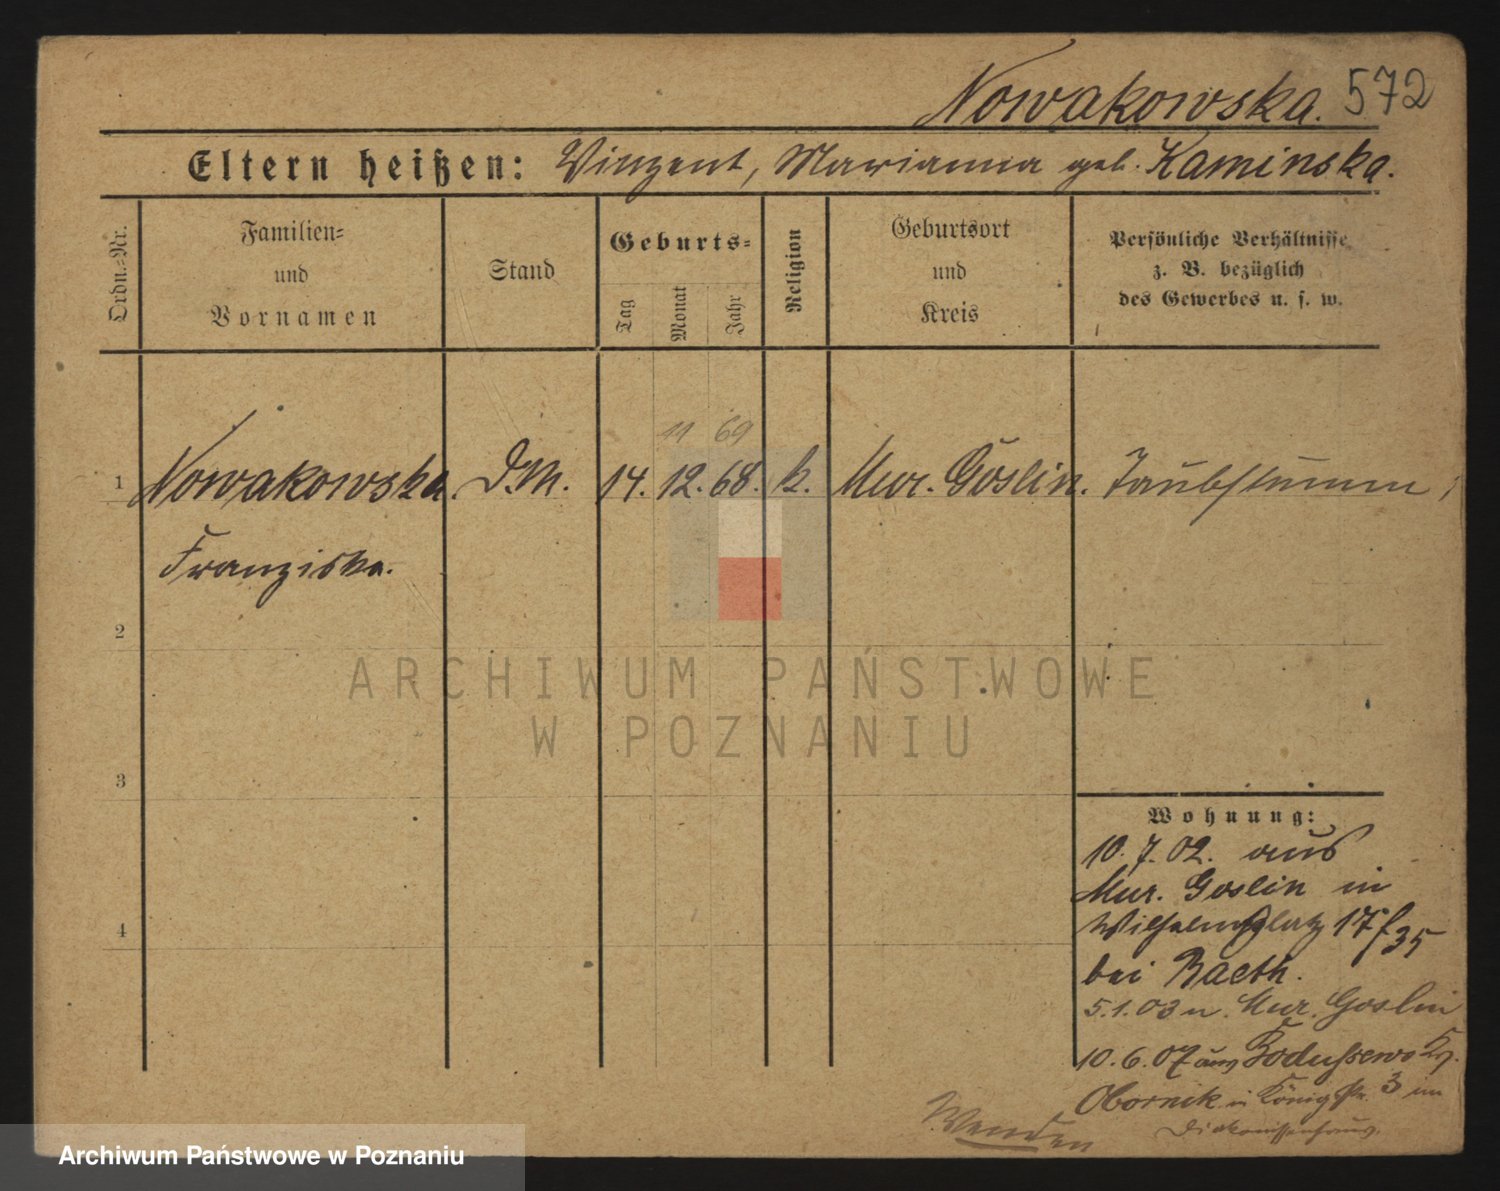 Nowakowska. 572
Eltern heißen: Vinzent, Marianna geb. Kaminska.
Ordn.-Nr.
Familien-
und
Vornamen
Stand
Geburts-
Tag
Monat
Jahr
Religion
Geburtsort
und
Kreis
Persönliche Verhältnisse
z. B. bezüglich
des Gewerbes u. s. w.
11 69
1 Nowakowska. D.M. 14. 12. 68. k. Mur. Goslin. Taubstumm
Franziska.
2
3
4
Wohnung:
10. 7. 02. aus
Mur. Goslin in
Wilhelmsplatz 17 f 35
bei Raeth.
5.1.03 n. Mur. Goslin
10. 6. 07 aus
Obornik in Königstr. 3 im
Diakonissenhaus.
Wenden
ARCHIWUM PAŃSTWOWE
W POZNANIU
Archiwum Państwowe w Poznaniu